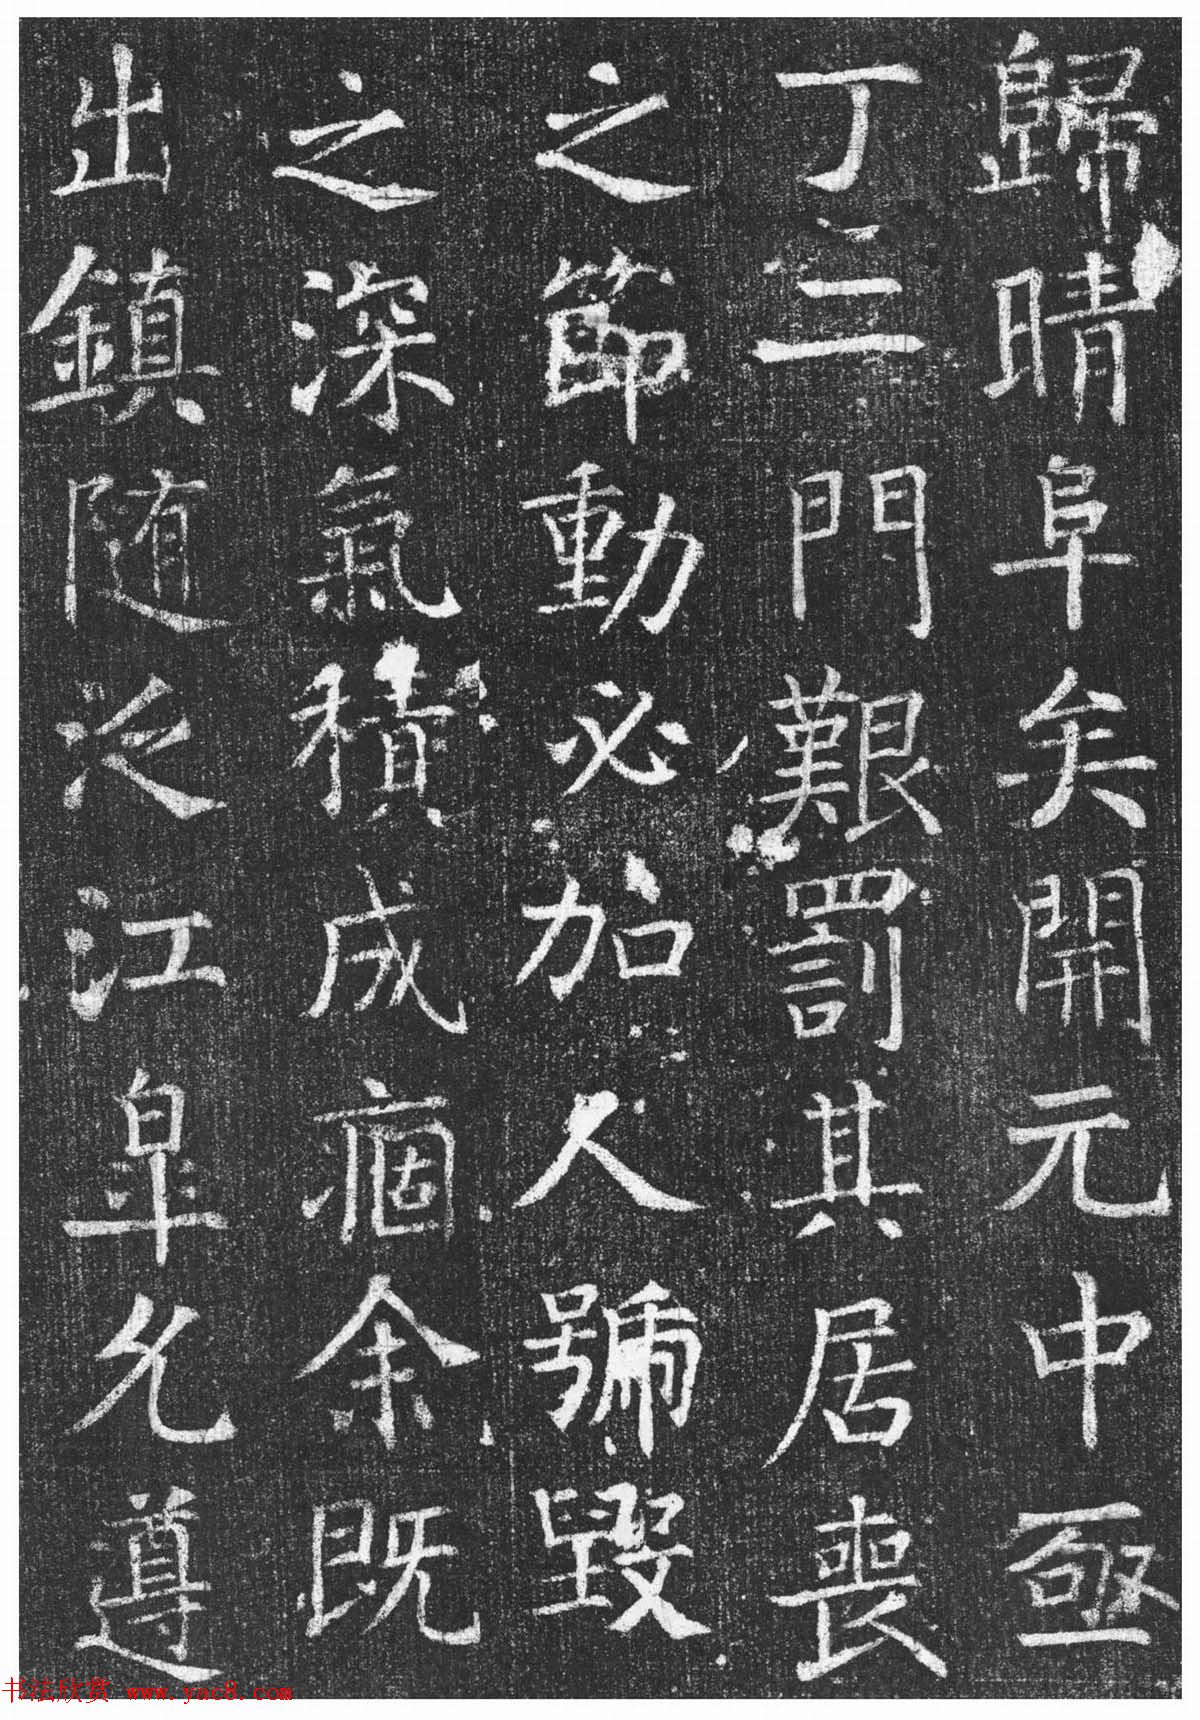 歸晴阜矣開元中亟
丁二門艱罰其居喪
之節動必加人號毀
之深氣積成痼余既
出鎮随泛江皐允遵
书法欣赏 www.yac8.com